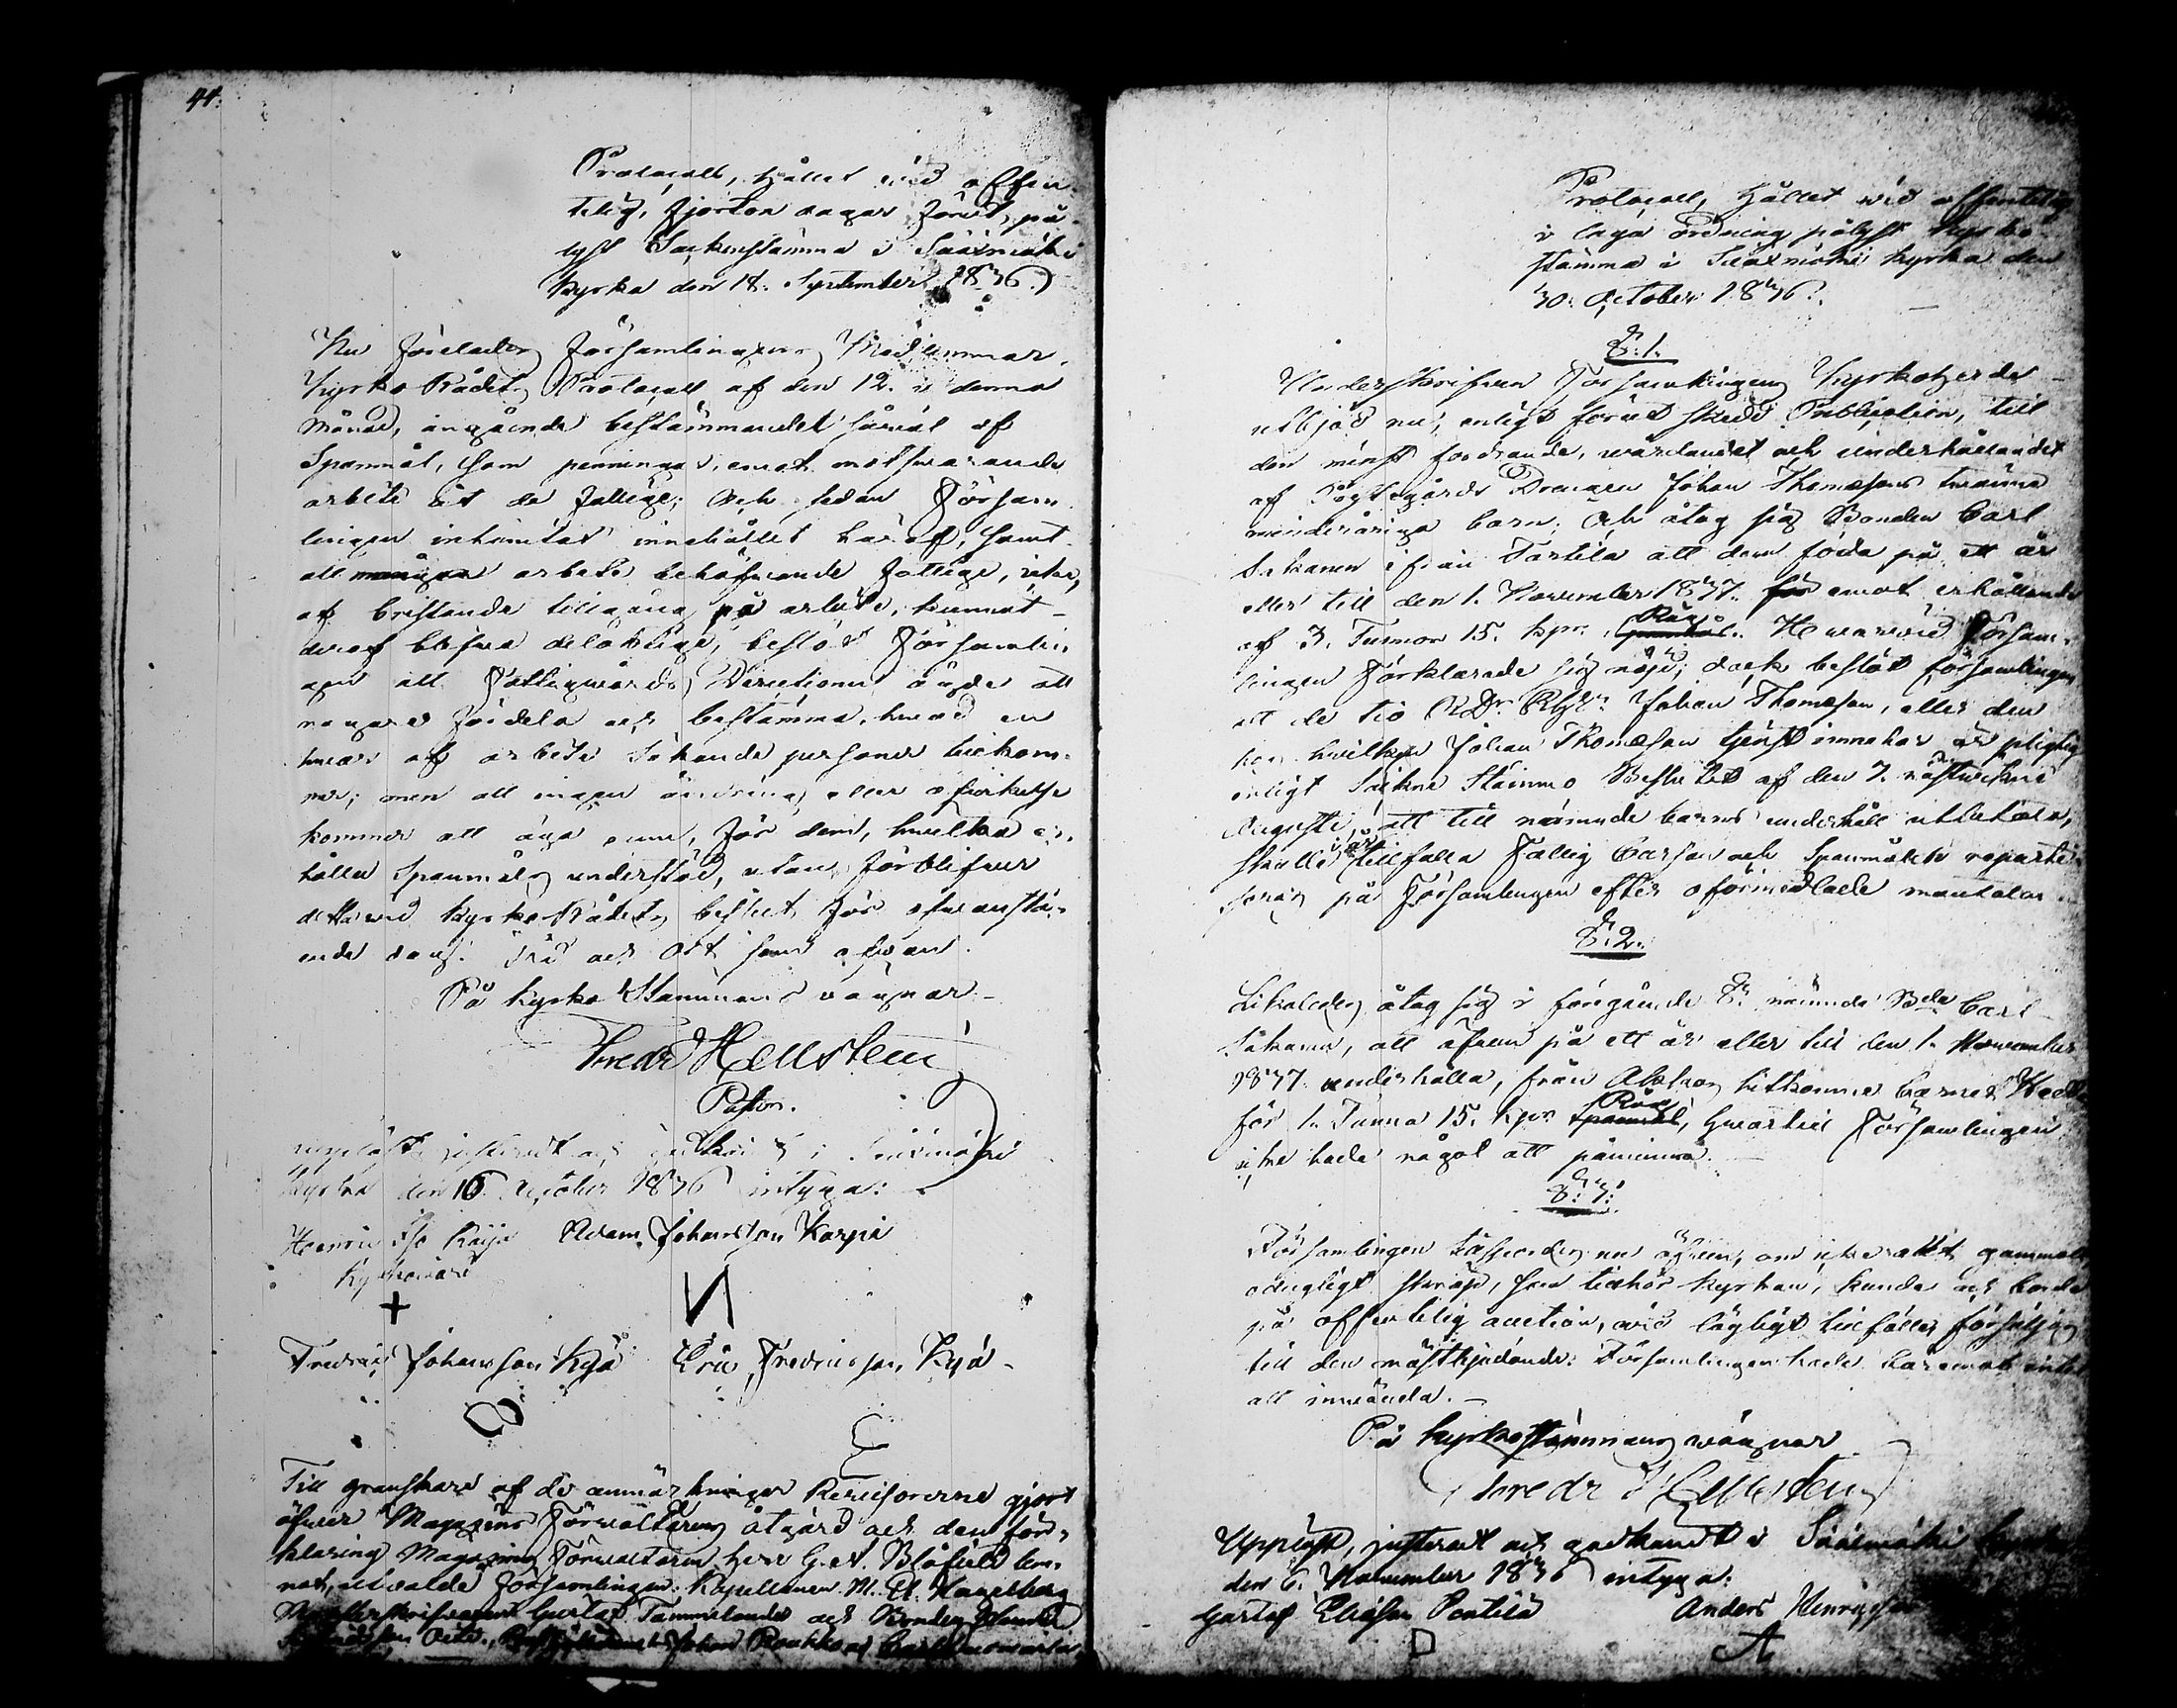 44.
Protocoll, hållet vid offen
telig, fjorton dagar förut, på-
lyst Sockenstämma i Sääxmäki
Kyrka den 18. September 1836.
Nu förelades Församlingens Medlemmar,
Kyrko Rådets Protocoll af den 12. i denna
Månad, angående bestämmandet såväl af
Spanmål, som penningar, emot motsvarande
arbete åt de fattige; Och sedan Försam-
lingen inhämtat innehållet häraf, samt
att många arbete behöfvande fattige, icke,
af bristande tillgång på arbete, kunnat
deraf blifva delaktige, beslöt Församlin-
gen att Fattigvårds Directionen ägde att
fördela och bestämma, hvad en
hvar af arbete sökande personer tillkom-
mer; men att ingen ändring eller
kommer att äga rum, för dem, hvilka er-
hålla Spanmåls understöd, utan förblifver
detta vid Kyrko Rådets beslut för ofvanstå-
ende dag. År och Ort som ofvan.
På Kyrko Stämmans vägnar
Fredr Hellsten
Pastor.
Uppläst, justerat och godkändt i Sääxmäki
Kyrka den 16 October 1836 intyga:
Henric Kaija Adam Johansson Karpi
Kyrkovärd
+ И
Fredric Johansson Kyä Eric Fredricsson Kyä
Till granskare af de anmärkningar Revisorerne gjort
öfver Magazins Förvaltarens åtgärd och den för-
klaring Magazins Förvaltaren Herr G. A. Blåfield lem-
nat, utvalde Församlingen: Kapellanen M. El.
Gustaf Tammelander och Bonden
Johan
Protocoll, hållet vid offentelig
i laga ordning pålyst Kyrko
stämma i Sääxmäki Kyrka den
30. October 1836.
§. 1.
Underskrifven Församlingens Kyrkoherde
utbjöd nu, enligt förut skedd Publication, till
den minst fordrande, vårdandet och underhållandet
af Drengen Johan Thomassons tvänne
minderåriga barn; Och åtog sig Bonden Carl
Sakanen ifrån Tarttila att dem föda på ett år
eller till den 1. November 1837. för emot erhållande
af 3. Tunnor 15. kpr. Spanmål Råg. Hvarvid Försam-
lingen förklarade sig nöjd; dock beslöt församlingen
att de tio RDr. Johan Thomasson, eller den
hos hvilken Johan Thomasson tjenst innehar är pligtig
enligt Sockne Stämmo Beslutet af den 7. nästvikne
Augusti, att till nämnde barns underhåll utbetala,
skulle tillfalla Fattig Cassan och Spanmålen reparti-
seras på Församlingen efter oförmedlade mantalen.
§. 2.
Likaledes åtog sig i föregående §. nämnde Bde Carl
Sakanen, att äfven på ett år eller till den 1. November
1837. underhålla, från hitkomne barnet
för 1. Tunna 15. kpr. Spanmål Råg, hvartill Församlingen
icke hade något att påminna.
§. 3.
Församlingen tillspordes nu äfven, om icke allt gammalt
odugligt skrap, som tillhör kyrkan, kunde och borde
på offentelig auction, vid lägligt tillfälle, försäljas
till den mästbjudande: Församlingen hade häremot intet
att invända.
På Kyrkostämmans vägnar
Fredr Hellsten
Uppläst, justerat och godkändt i Sääxmäki Kyrka
den 6. November 1836 intyga:
Gustaf Eliasson Pentilä Anders Henricsson
A